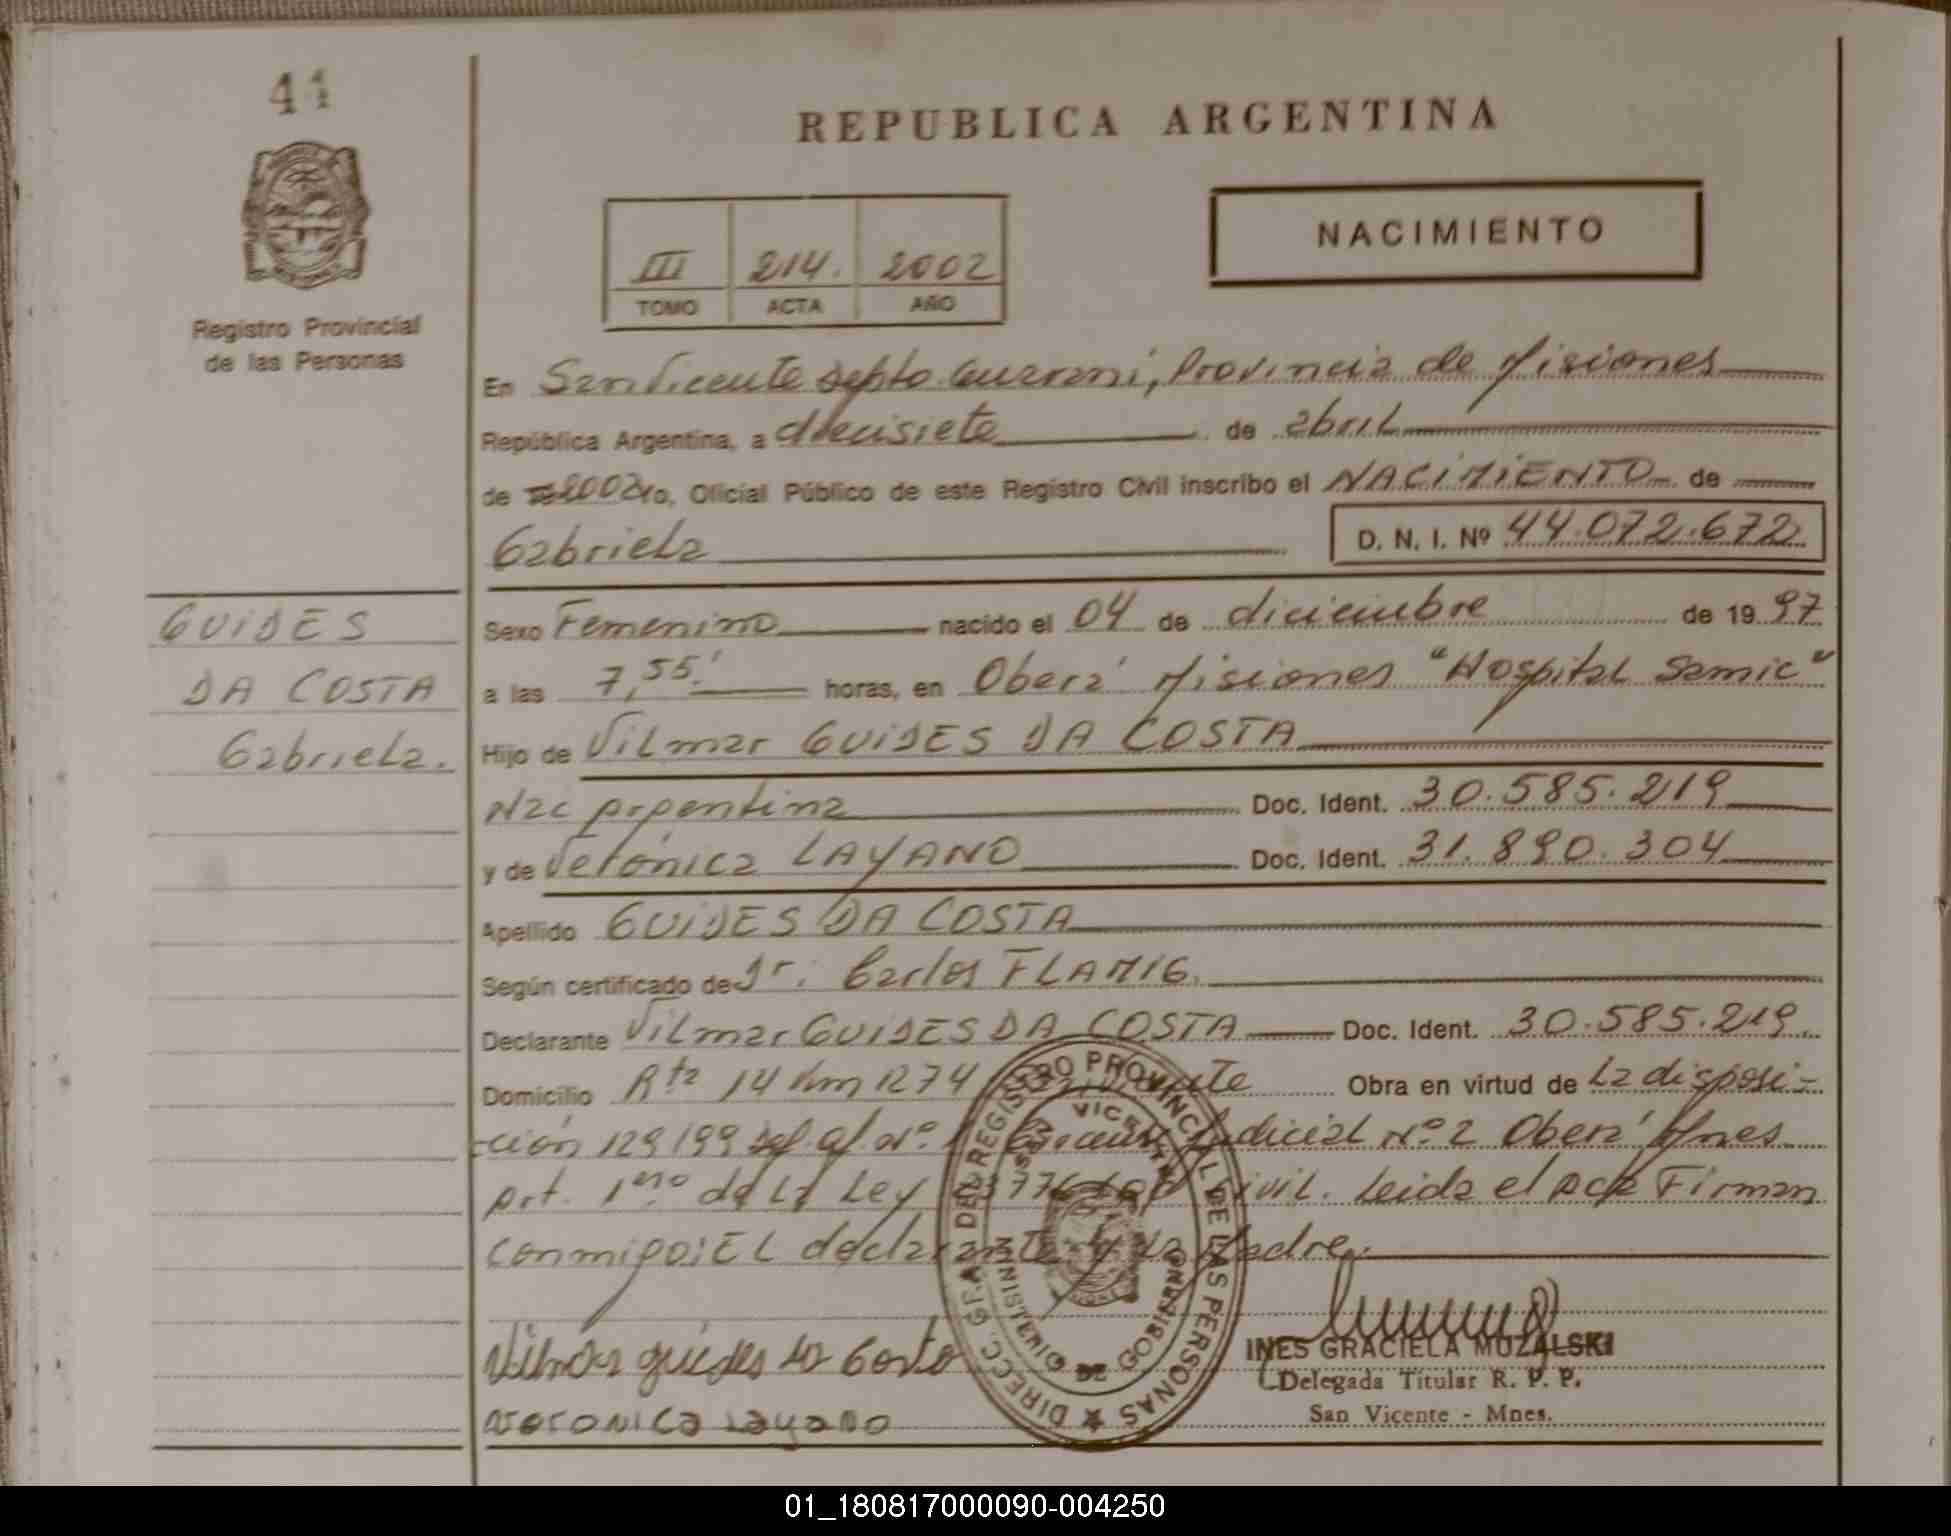 41
REPUBLICA ARGENTINA
NACIMIENTO
III 214. 2002
TOMO ACTA AÑO
Registro Provincial
de las Personas
En San Vicente Depto Guarani, Provincia de Misiones
República Argentina, a diecisiete de abril
de 2002 ro, Oficial Público de este Registro Civil inscribo el NACIMIENTO de
Gabriela D. N. I. Nº 44.072.672
GUIDES
DA COSTA
Gabriela.
Sexo Femenino nacido el 04 de diciembre de 19 97
a las 7,55' horas, en Oberá Misiones "Hospital Samic"
Hijo de Vilmar GUIDES DA COSTA
Nac Argentina Doc. Ident. 30.585.219
y de Verónica LAYANO Doc. Ident. 31.890.304
Apellido GUIDES DA COSTA
Según certificado de Dr. Carlos FLAMIG.
Declarante Vilmar GUIDES DA COSTA Doc. Ident. 30.585.219
Domicilio Rta 14 Km 1274 Obra en virtud de La disposi-
-ción 129/99 Judicial Nº 2 Oberá Mnes
Art. 1ero de La Ley Civil. Leida el Acta Firman
conmigo: EL declarante y La Madre.
Vilmar guides da Costa
veronica Layano
DIRECC. GRAL. DEL REGISTRO PROVINCIAL DE LAS PERSONAS
SAN VICENTE
MINISTERIO DE GOBIERNO
INES GRACIELA MUZALSKI
Delegada Titular R. P. P.
San Vicente - Mnes.
01_180817000090-004250